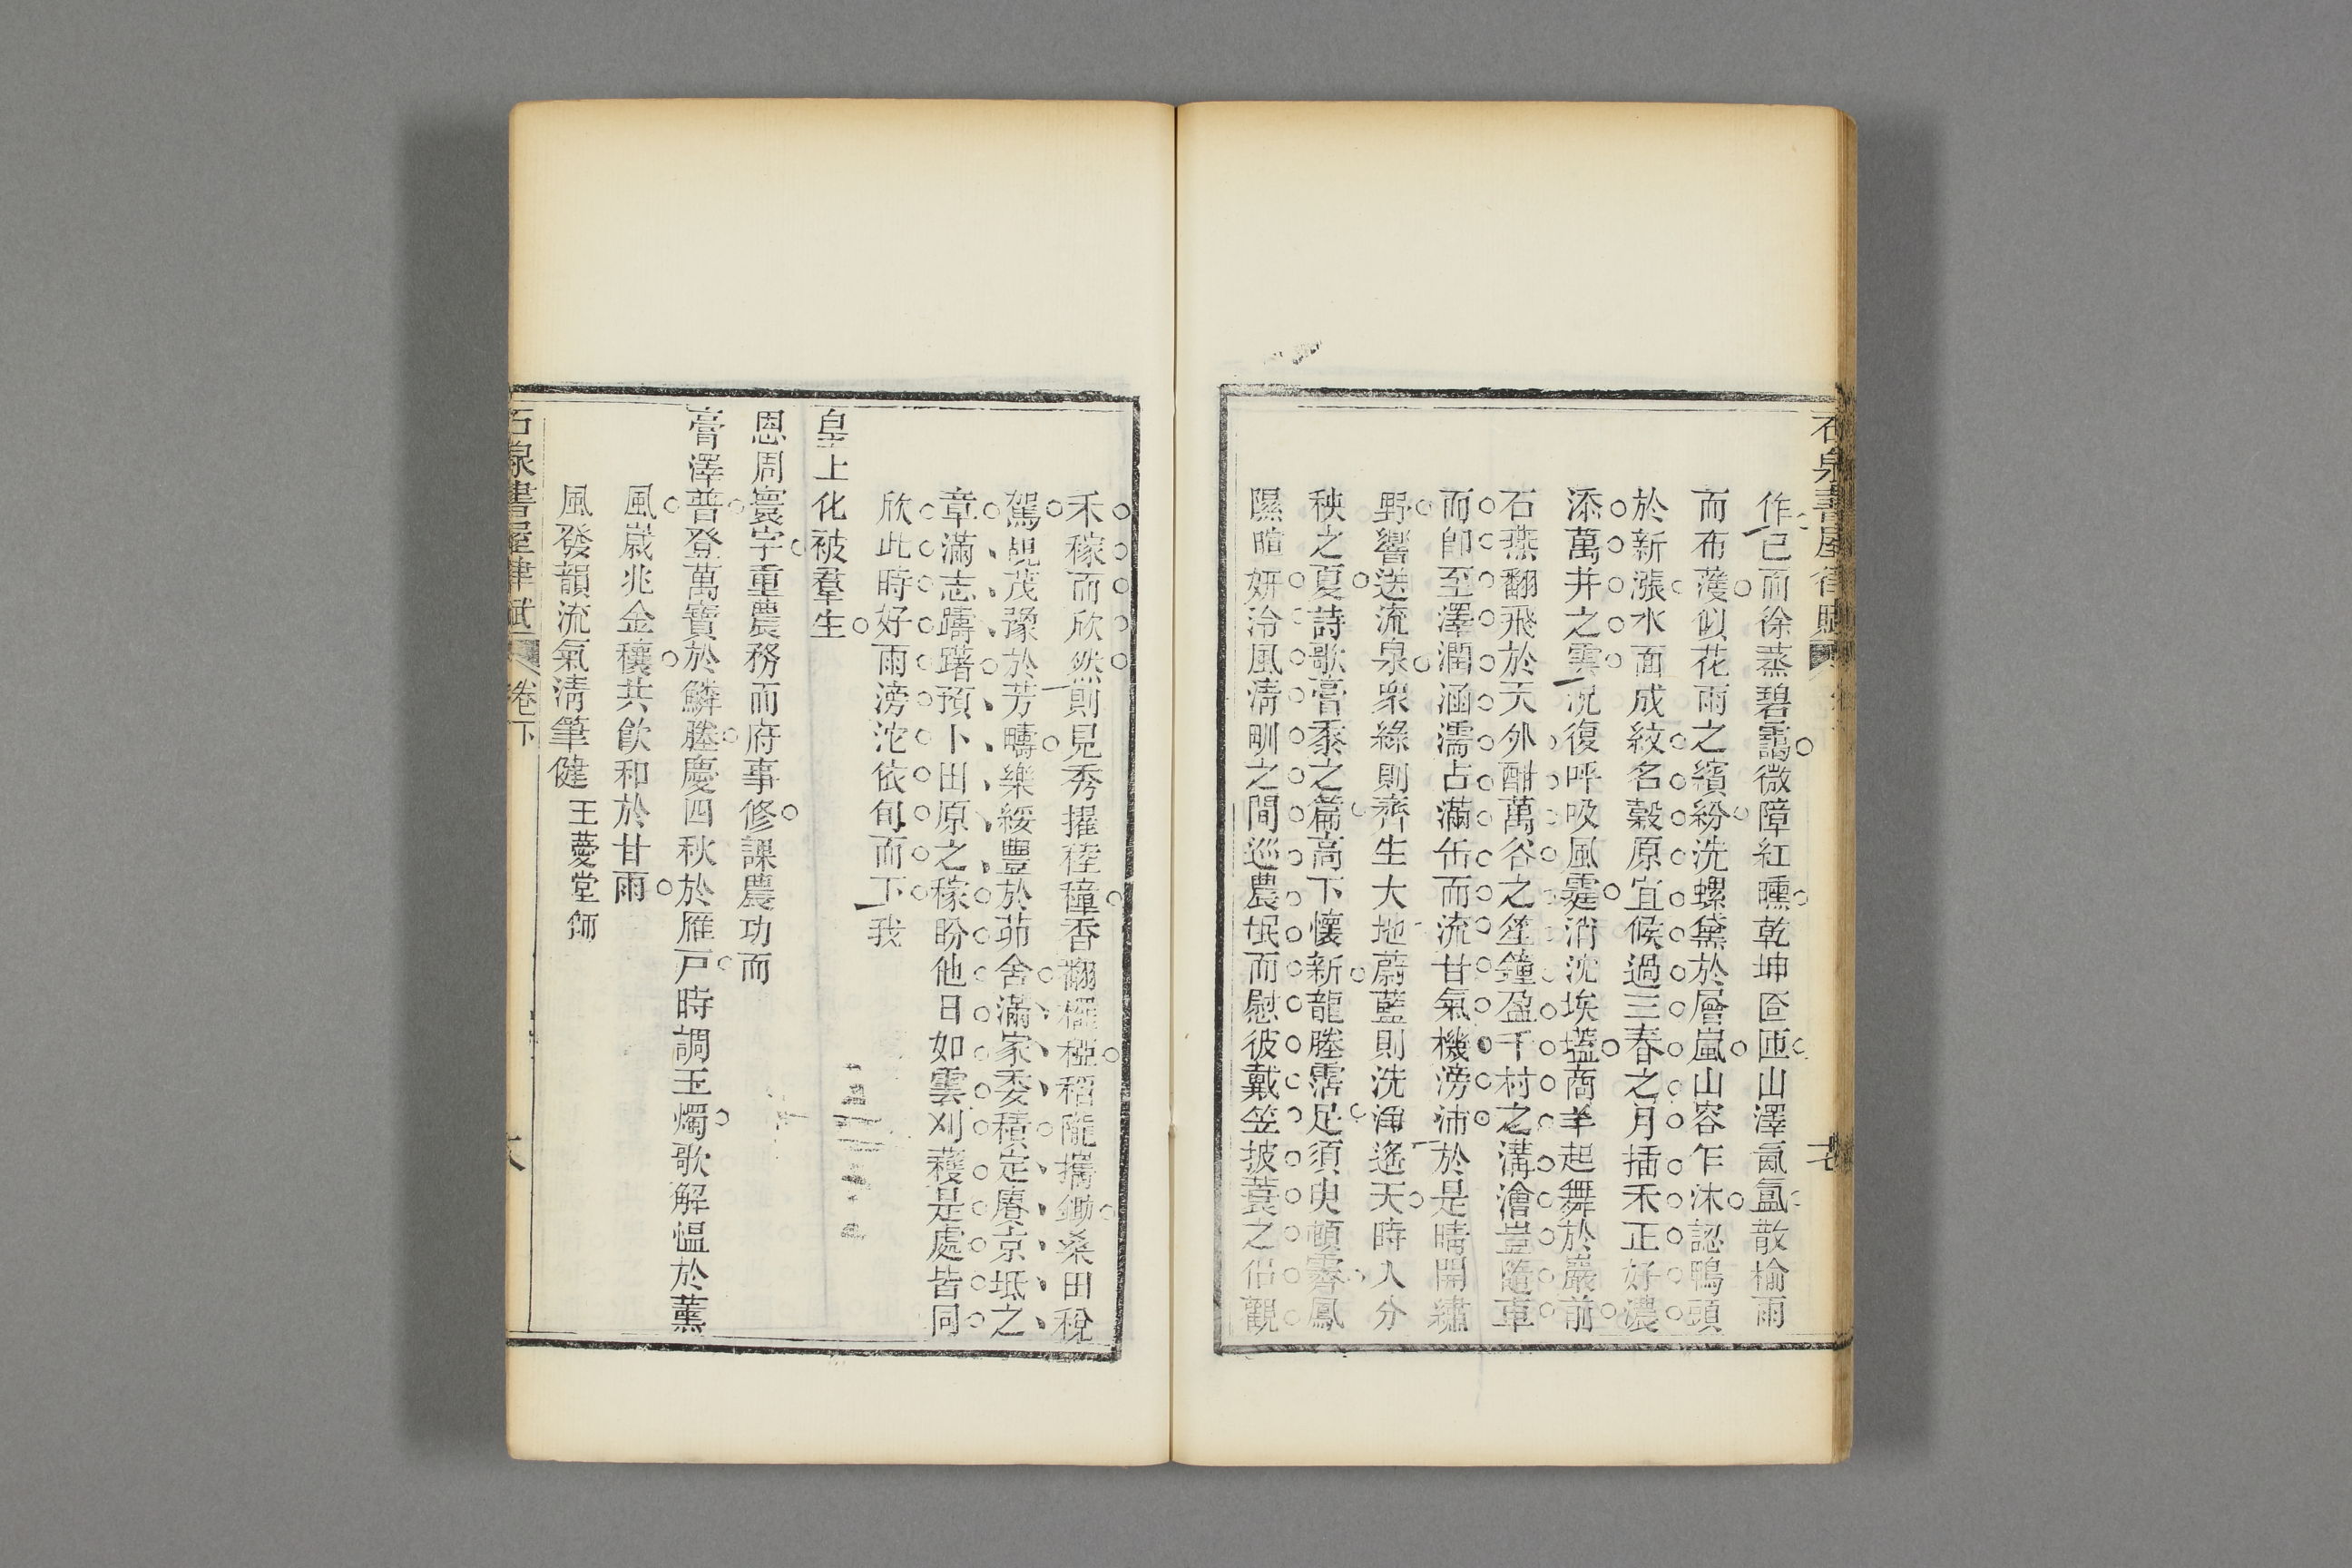 石泉書屋律賦
作已而徐蒸碧靄微障紅曛乾坤匼匝山澤氤氳散榆雨
而布濩似花雨之繽紛洗螺黛於層嵐山容乍沐認鴨頭
於新漲水面成紋名穀原宜候過三春之月插禾正好濃
添萬井之雲況復呼吸風霆消沈埃壒商羊起舞於巖前
石燕翻飛於天外酣萬谷之笙鐘盈千村之溝澮豈隨車
而卽至澤潤涵濡占滿缶而流甘氣機滂沛於是晴開繡
野響送流泉衆綠則齊生大地蔚藍則洗淨遙天時人分
秧之夏詩歌膏黍之篇高下懷新龍塍霑足須臾頓霽鳳
隰暄妍泠風淸甽之間巡農氓而慰彼戴笠披蓑之侶觀
禾稼而欣然則見秀擢稑穜香翻穲稏稻隴攜鋤桑田稅
駕覘茂豫於芳疇樂綏豐於茆舍滿家委積定賡京坻之
章滿志躊躇預卜田原之稼盼他日如雲刈穫是處皆同
欣此時好雨滂沱依旬而下我
皇上化被羣生
恩周寰宇重農務而府事修課農功而
膏澤普登萬寶於鱗塍慶四秋於雁戸時調玉燭歌解慍於薰
風歲兆金穰共飮和於甘雨
風發韻流氣淸筆健 王薆堂師
石泉書屋律賦 卷下